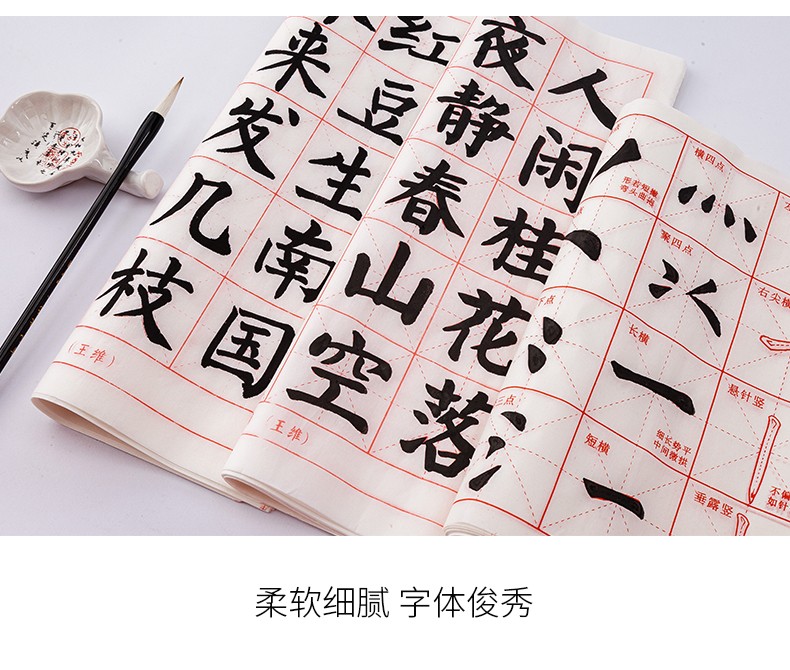 红豆生南国
来发几枝
(王维)
人闲桂花落
夜静春山空
(王维)
横四点
聚四点
右尖横
长横
悬针竖
细长势平
中间微拱
三点
短横
垂露竖
不偏
如针
柔软细腻 字体俊秀